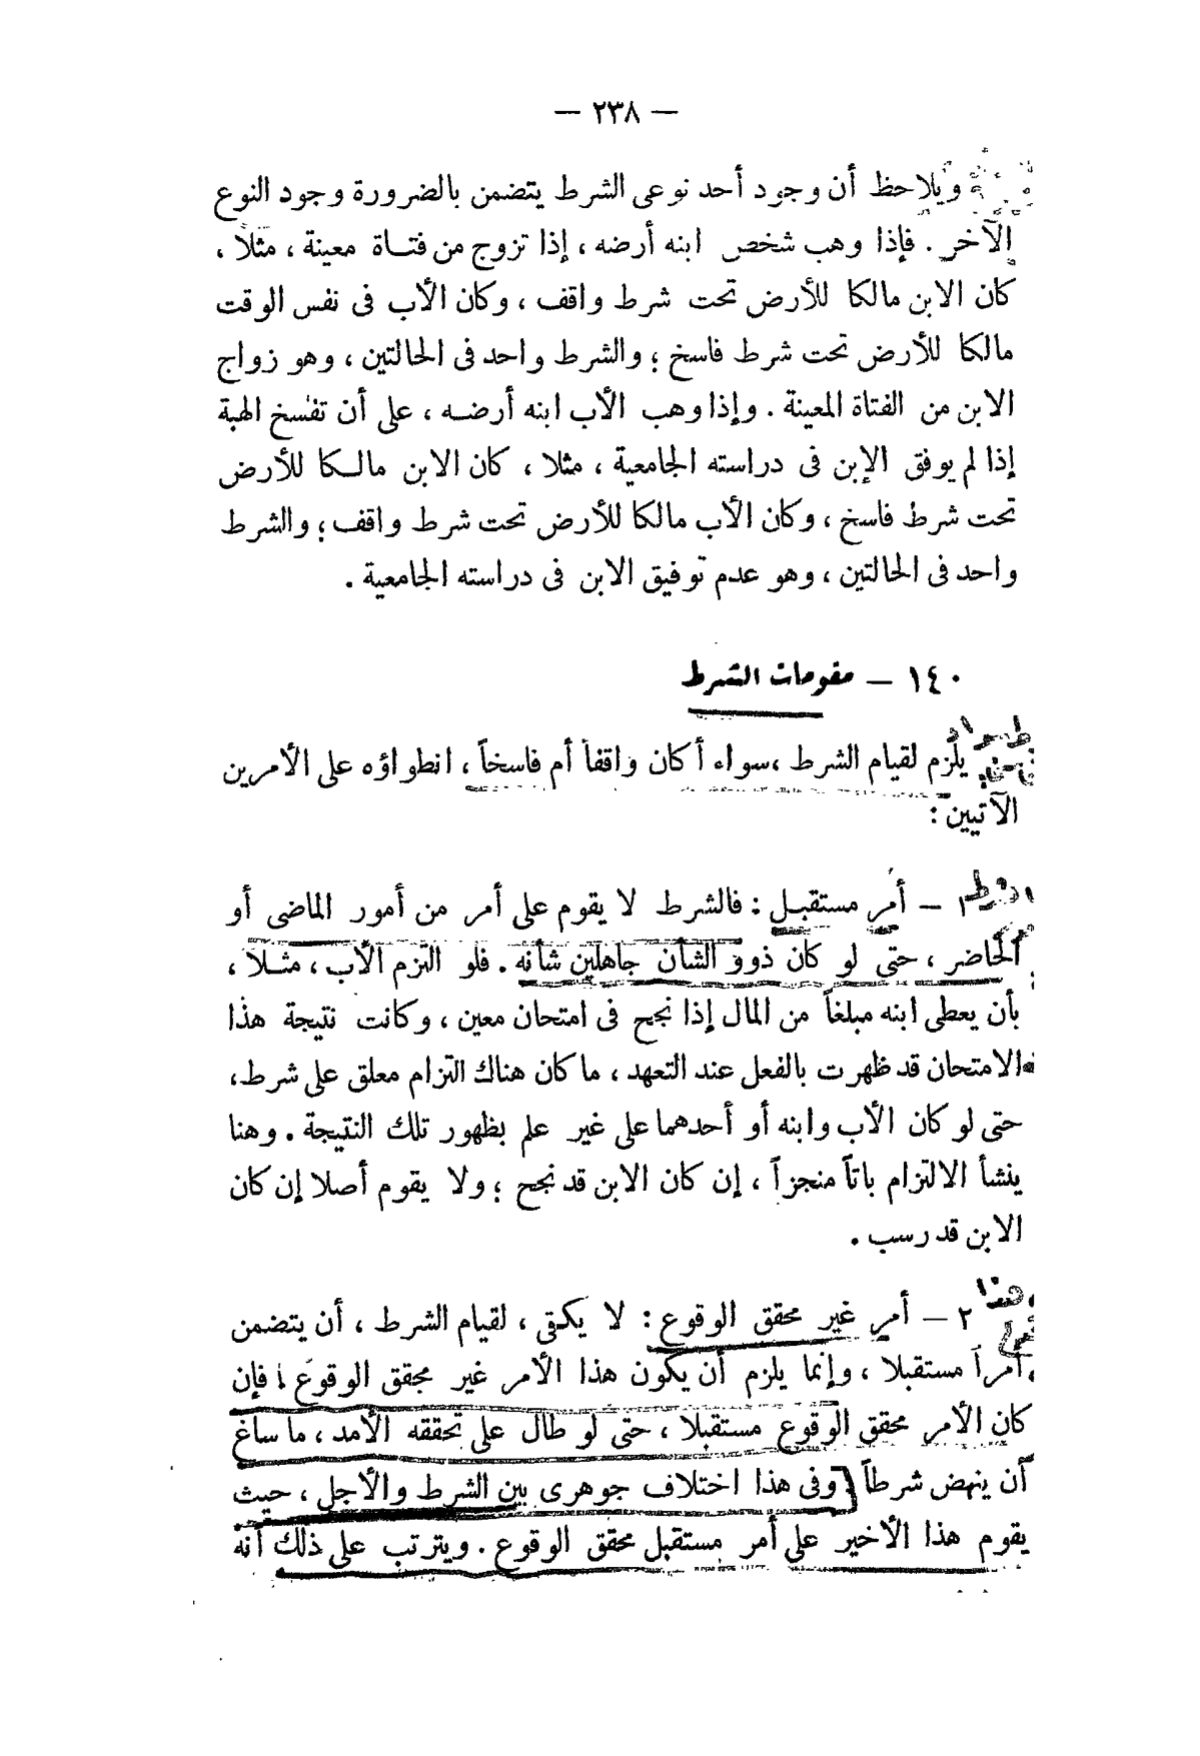 — ٢٣٨ —
ويلاحظ أن وجود أحد نوعى الشرط يتضمن بالضرورة وجود النوع
الآخر . فإذا وهب شخص ابنه أرضه ، إذا تزوج من فتاة معينة ، مثلا ،
كان الابن مالكا للأرض تحت شرط واقف ، وكان الأب فى نفس الوقت
مالكا للأرض تحت شرط فاسخ ؛ والشرط واحد فى الحالتين ، وهو زواج
الابن من الفتاة المعينة . وإذا وهب الأب ابنه أرضه ، على أن تفسخ الهبة
إذا لم يوفق الإبن فى دراسته الجامعية ، مثلا ، كان الابن مالكا للأرض
تحت شرط فاسخ ، وكان الأب مالكا للأرض تحت شرط واقف ؛ والشرط
واحد فى الحالتين ، وهو عدم توفيق الابن فى دراسته الجامعية .
١٤٠ — مقومات الشرط
يلزم لقيام الشرط ، سواء أكان واقفاً أم فاسخاً ، انطواؤه على الأمرين
الآتيين :
١ — أمر مستقبل : فالشرط لا يقوم على أمر من أمور الماضى أو
الحاضر ، حتى لو كان ذوو الشأن جاهلين شأنه . فلو التزم الأب ، مثلا ،
بأن يعطى ابنه مبلغاً من المال إذا نجح فى امتحان معين ، وكانت نتيجة هذا
الامتحان قد ظهرت بالفعل عند التعهد ، ما كان هناك التزام معلق على شرط ،
حتى لو كان الأب وابنه أو أحدهما على غير علم بظهور تلك النتيجة . وهنا
ينشأ الالتزام باتاً منجزاً ، إن كان الابن قد نجح ؛ ولا يقوم أصلا إن كان
الابن قد رسب .
٢ — أمر غير محقق الوقوع : لا يكفى ، لقيام الشرط ، أن يتضمن
أمراً مستقبلا ، وإنما يلزم أن يكون هذا الأمر غير محقق الوقوع ؛ فإن
كان الأمر محقق الوقوع مستقبلا ، حتى لو طال على تحققه الأمد ، ما ساغ
أن ينهض شرطاً . وفى هذا اختلاف جوهرى بين الشرط والأجل ، حيث
يقوم هذا الأخير على أمر مستقبل محقق الوقوع . ويترتب على ذلك أنه